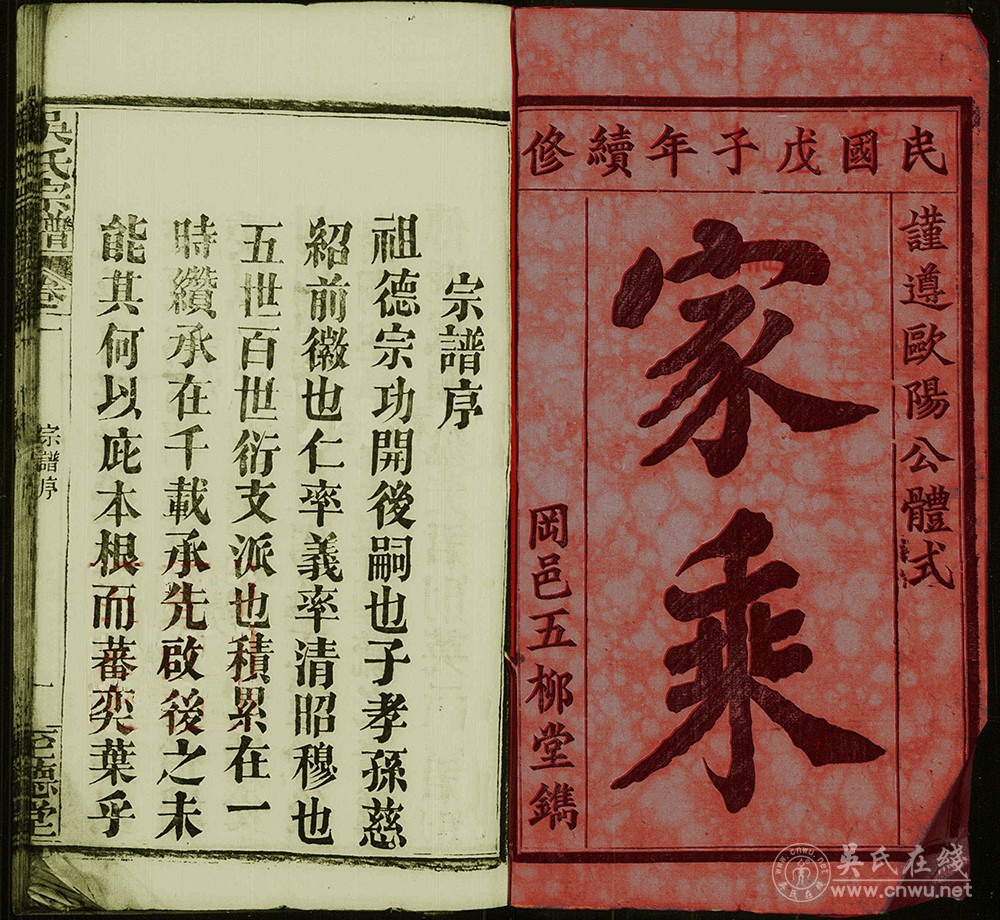 民國戊子年續修
謹遵歐陽公體式
家乘
岡邑五柳堂鐫
宗譜序
祖德宗功開後嗣也子孝孫慈
紹前徽也仁率義率清昭穆也
五世百世衍支派也積累在一
時纘承在千載承先啟後之未
能其何以庇本根而蕃奕葉乎
吳氏宗譜
卷一
宗譜序
一
至德堂
吳氏在綫
www.cnwu.net